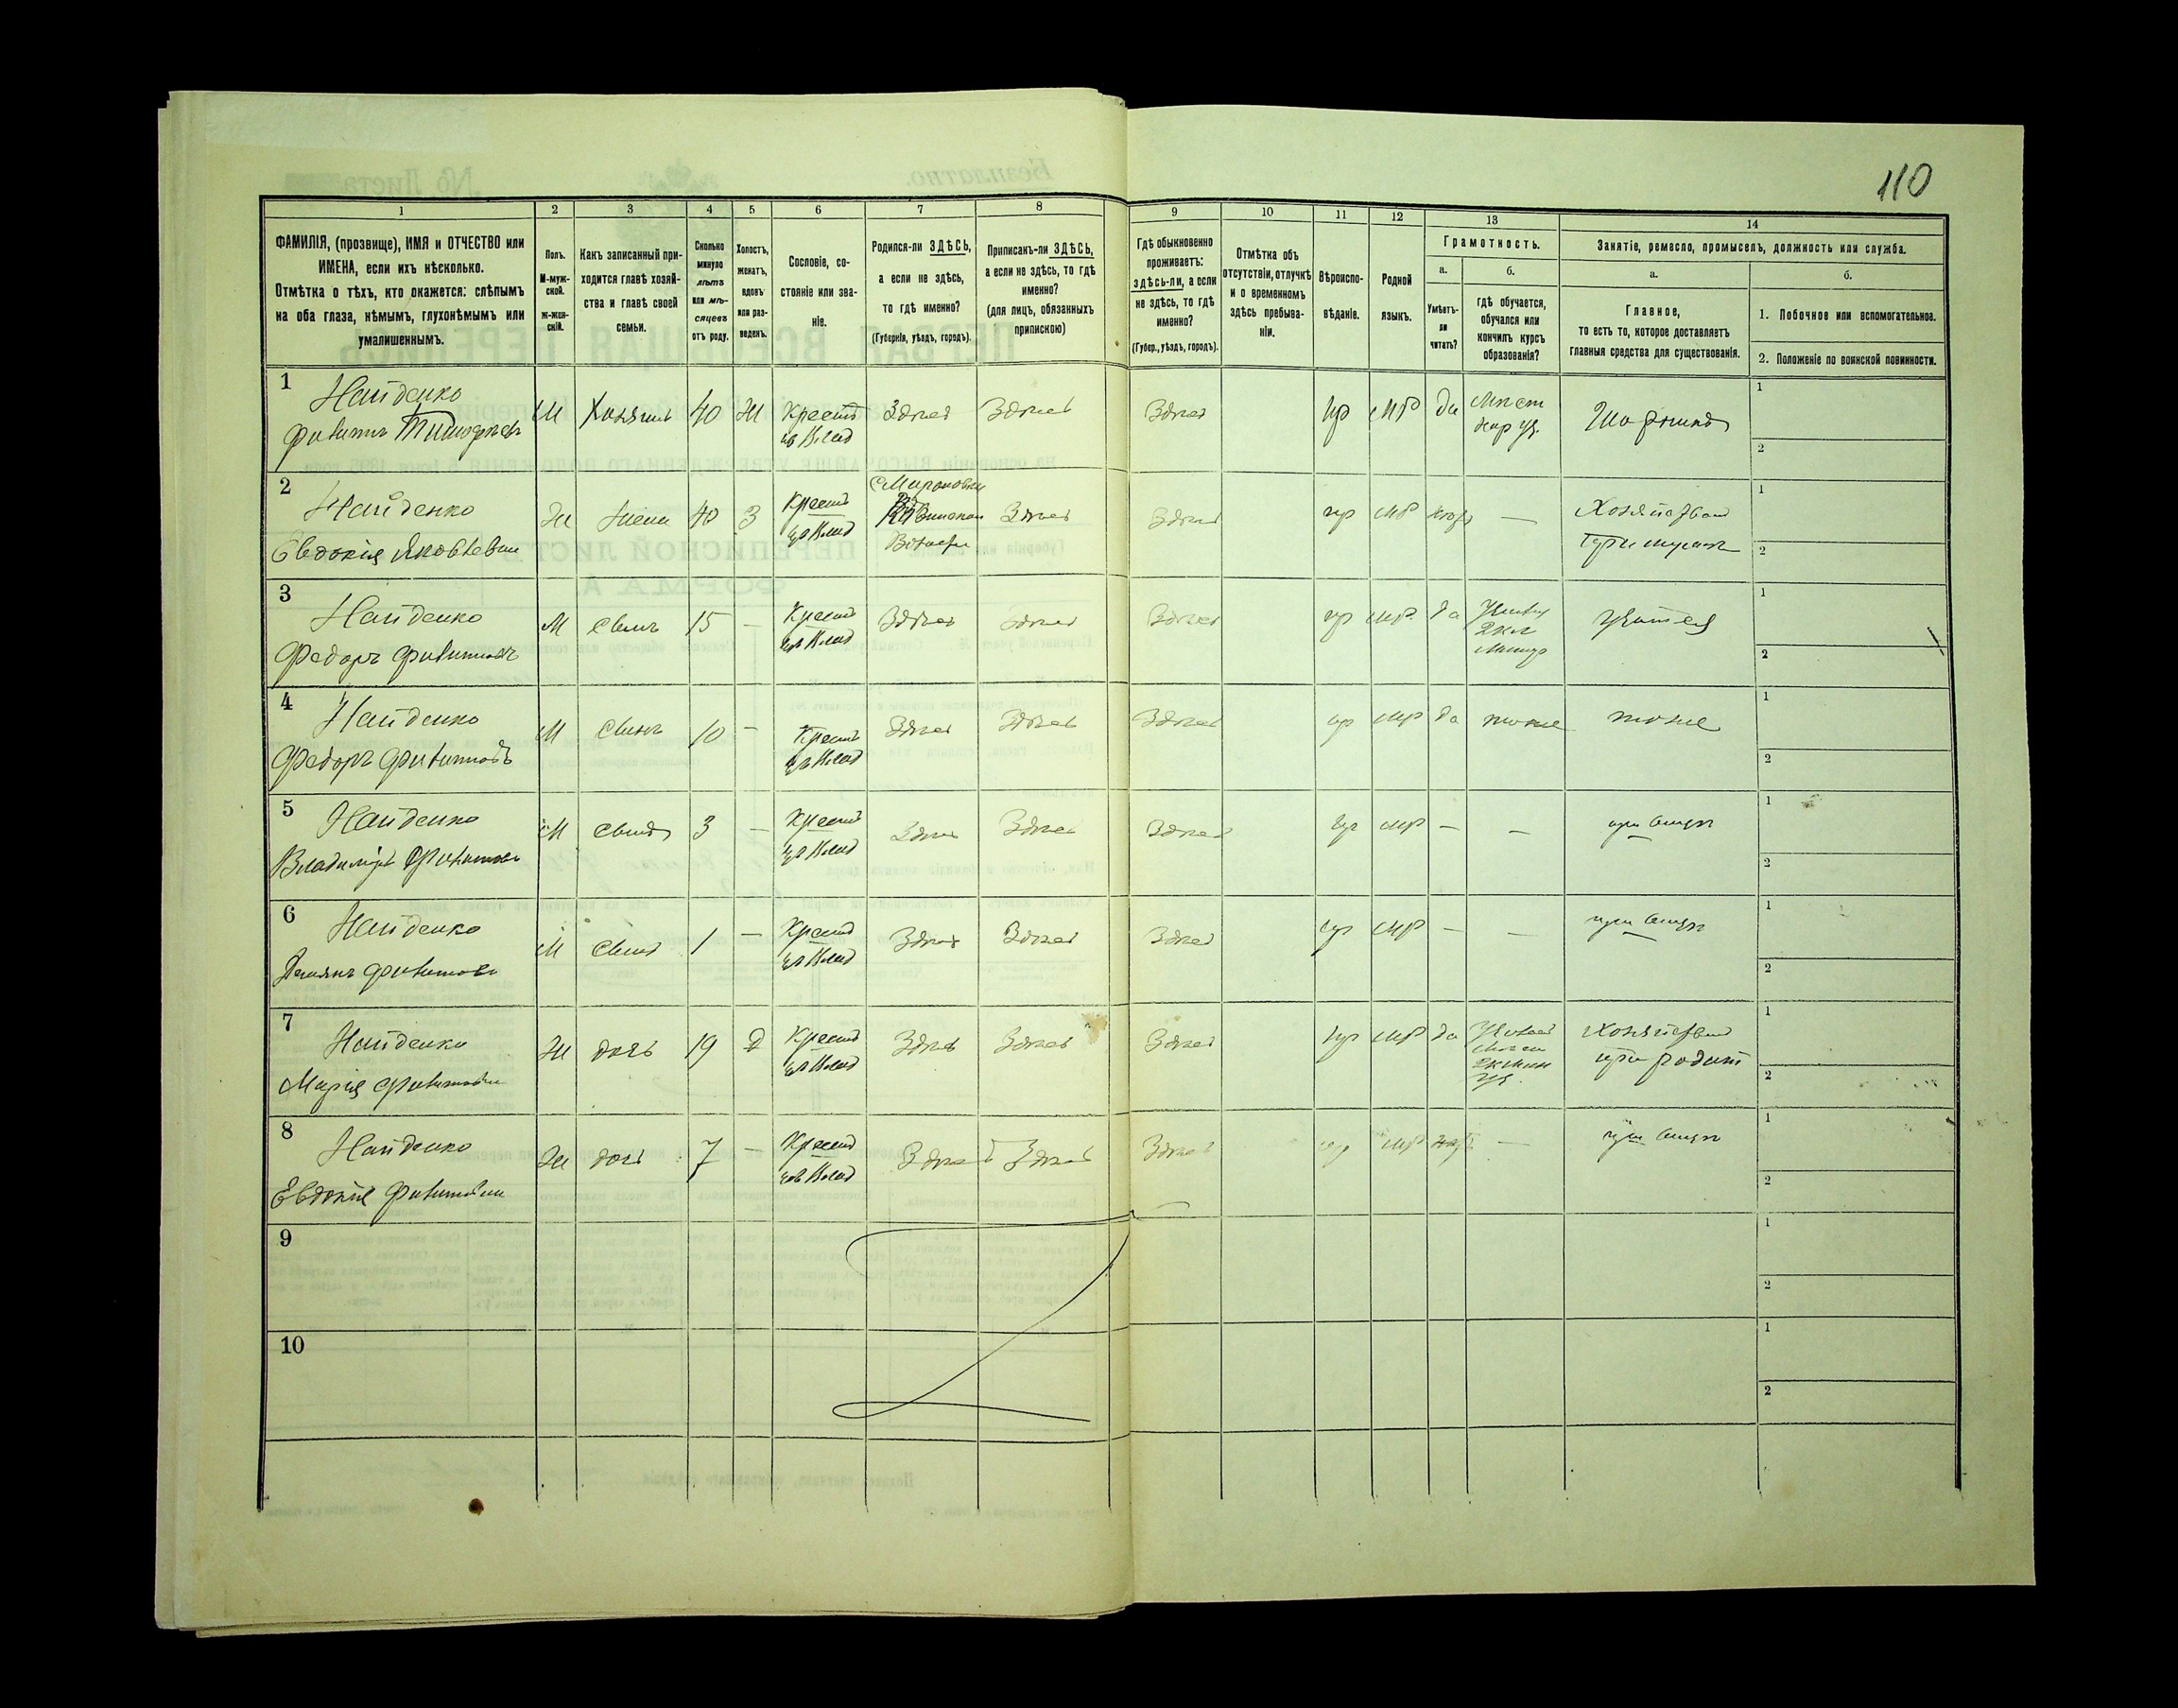 110
1
2
3
4
5
6
7
8
9
10
11
12
13
14
ФАМИЛІЯ, (прозвище), ИМЯ и ОТЧЕСТВО или
ИМЕНА, если ихъ нѣсколько.
Отмѣтка о тѣхъ, кто окажется: слѣпымъ
на оба глаза, нѣмымъ, глухонѣмымъ или
умалишеннымъ.
Полъ.
М-муж-
ской.
Ж-жен-
скій.
Какъ записанный при-
ходится главѣ хозяй-
ства и главѣ своей
семьи.
Сколько
минуло
лѣтъ
или мѣ-
сяцевъ
отъ роду.
Холостъ,
женатъ,
вдовъ
или раз-
веденъ.
Сословіе, со-
стояніе или зва-
ніе.
Родился-ли ЗДѢСЬ,
а если не здѣсь,
то гдѣ именно?
(Губернія, уѣздъ, городъ).
Приписанъ-ли ЗДѢСЬ,
а если не здѣсь, то гдѣ
именно?
(для лицъ, обязанныхъ
припискою)
Гдѣ обыкновенно
проживаетъ:
здѣсь-ли, а если
не здѣсь, то гдѣ
именно?
(Губер., уѣздъ, городъ).
Отмѣтка объ
отсутствіи, отлучкѣ
и о временномъ
здѣсь пребыва-
ніи.
Вѣроиспо-
вѣданіе.
Родной
языкъ.
Грамотность.
а.
Умѣетъ-
ли
читать?
б.
гдѣ обучается,
обучался или
кончилъ курсъ
образованія?
Занятіе, ремесло, промыселъ, должность или служба.
а.
Главное,
то есть то, которое доставляетъ
главныя средства для существованія.
б.
1. Побочное или вспомогательное.
2. Положеніе по воинской повинности.
1
Найденко
Филипъ Тимофѣевъ
М
Хозяинъ
40
Ж
Крест
Здѣсь
Здѣсь
Здѣсь
пр
МР
да
1
2
2
Найденко
Евдокія Яковлевна
Ж
Жена
40
З
Крест
Здѣсь
Здѣсь
пр
МР
—
1
2
3
Найденко
Федоръ Филиповъ
М
Сынъ
15
—
Крест
Здѣсь
Здѣсь
Здѣсь
пр
МР
да
1
2
4
Найденко
Федоръ Филиповъ
М
Сынъ
10
—
Крест
Здѣсь
Здѣсь
Здѣсь
пр
МР
да
тоже
тоже
1
2
5
Найденко
Владиміръ Филиповъ
М
Сынъ
3
—
Крест
Здѣсь
Здѣсь
Здѣсь
пр
МР
—
—
при отцѣ
1
2
6
Найденко
Филиповъ
М
Сынъ
1
—
Крест
Здѣсь
Здѣсь
Здѣсь
пр
МР
—
—
при отцѣ
1
2
7
Найденко
Марія Филипова
Ж
дочь
19
Д
Крест
Здѣсь
Здѣсь
Здѣсь
пр
МР
да
при родит
1
2
8
Найденко
Евдокія Филипова
Ж
дочь
7
—
Крест
Здѣсь
Здѣсь
Здѣсь
пр
МР
—
при отцѣ
1
2
9
1
2
10
1
2